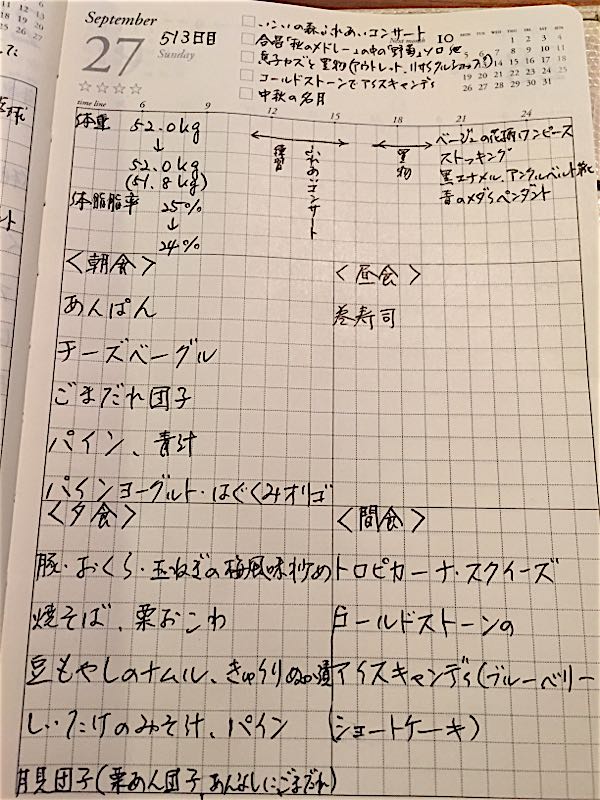 September
27
513日目
Sunday
☆☆☆☆
いこいの森ふれあいコンサート
合唱「秋のメドレー」の中の「野菊」ソロ他
Next month 10
MON TUE WED THU FRI SAT SUN
1 2 3 4
5 6 7 8 9 10 11
12 13 14 15 16 17 18
19 20 21 22 23 24 25
26 27 28 29 30 31
息子カズと買物(アウトレット、リサイクルショップ)
コールドストーンでアイスキャンディ
中秋の名月
time line 6 9 12 15 18 21 24
体重 52.0kg
↓
52.0kg
(51.8kg)
体脂肪率 25%
↓
24%
練習
ふれあいコンサート
買物
ベージュの花柄ワンピース
ストッキング
黒エナメル、アンクルベルト靴
青のメダらペンダント
<朝食>
あんぱん
チーズベーグル
ごまだれ団子
パイン、青汁
パインヨーグルト・はぐくみオリゴ
<昼食>
巻寿司
<夕食>
豚・おくら・玉ねぎの梅風味炒め
焼そば、栗おこわ
豆もやしのナムル、きゅうりぬか漬
しいたけのみそ汁、パイン
月見団子(栗あん団子、あんなしにごまだれ)
<間食>
トロピカーナ・スクイーズ
コールドストーンの
アイスキャンディ(ブルーベリー
ショートケーキ)